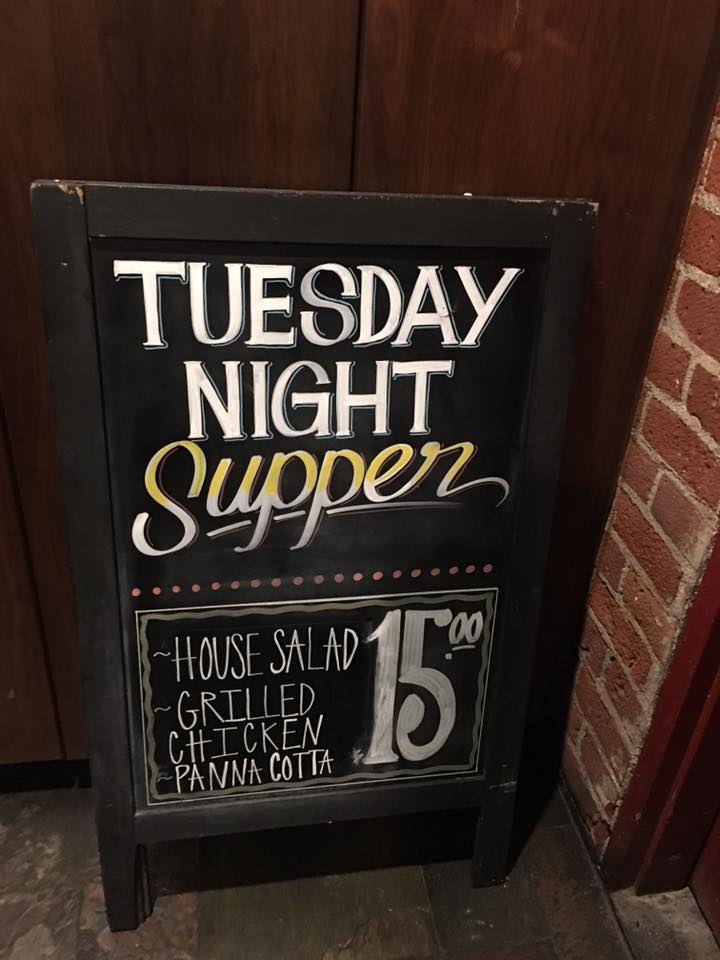 TUESDAY
NIGHT
Supper
~HOUSE SALAD
~GRILLED
CHICKEN
~PANNA COTTA
$15.00